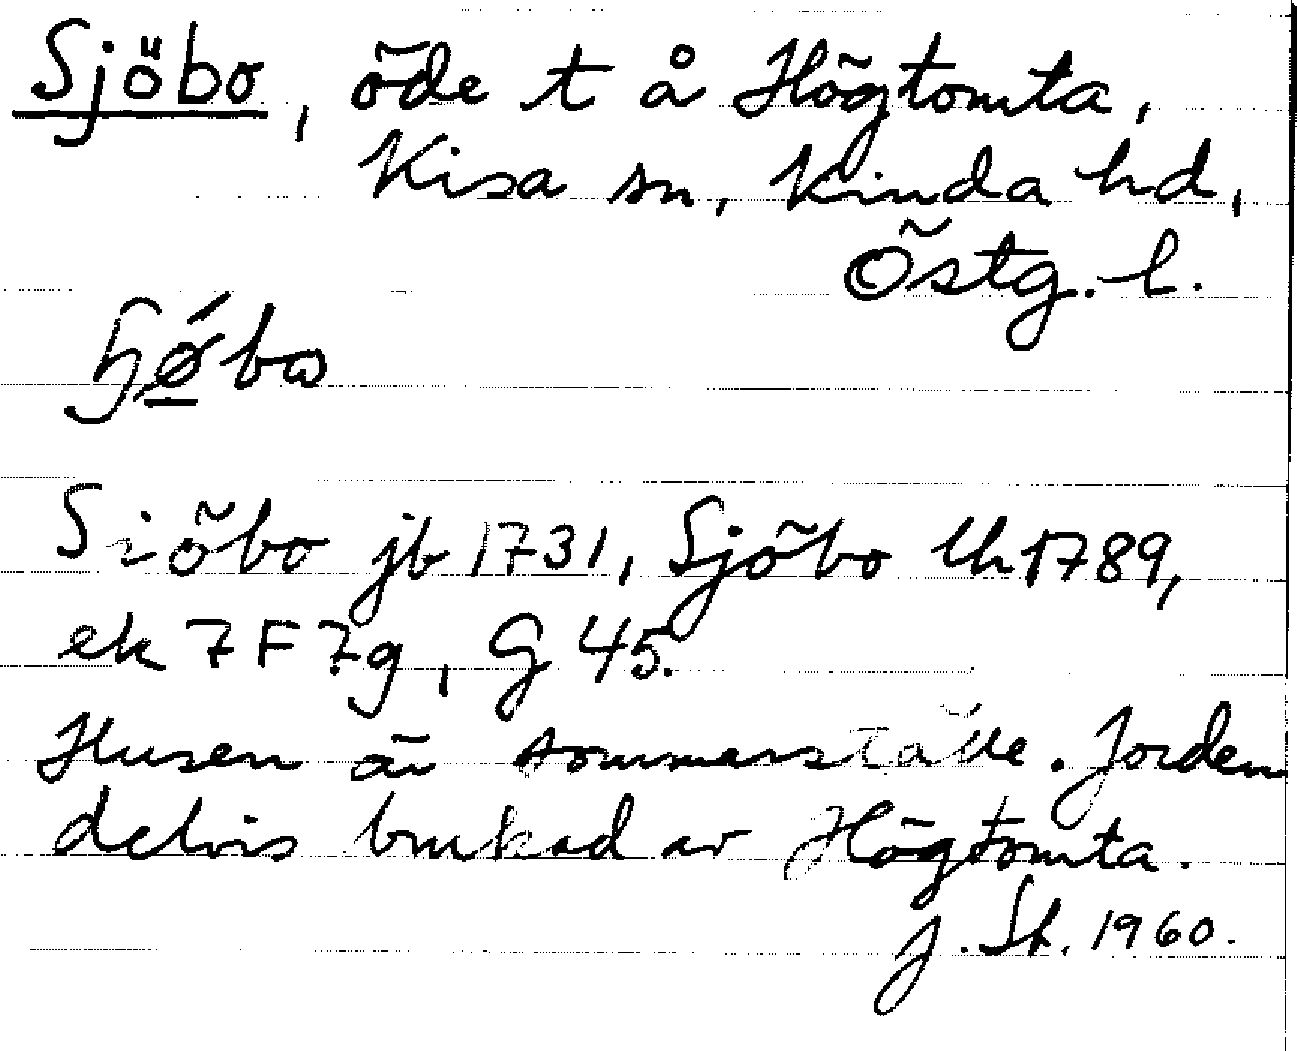 Sjöbo, öde t å Högtomta,
Kisa sn, Kinda hd,
Östg. l.
ɧǿ̲bω
Siöbo jb 1731, Sjöbo lh 1789,
ek 7F7g, G 45.
Husen är sommarställe. Jorden
delvis brukad av Högtomta.
J. St. 1960.